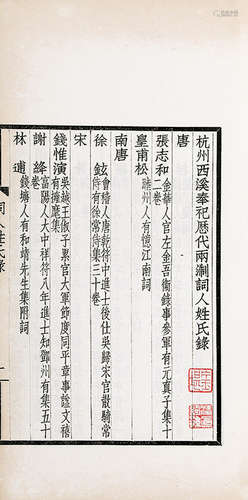 杭州西溪奉祀歷代兩浙詞人姓氏錄
唐
張志和 金華人官左金吾衞錄事參軍有元真子集十二卷
皇甫松 睦州人有憶江南詞
南唐
徐鉉 會稽人唐乾符中進士後仕吳歸宋官散騎常侍有徐常侍集三十卷
宋
錢惟演 吳越王俶子累官大軍節度同平章事謚文穆有擁旄集
謝絳 富陽人大中祥符八年進士知鄧州有集五十卷
林逋 錢塘人有和靖先生集附詞
詞人姓氏錄
一